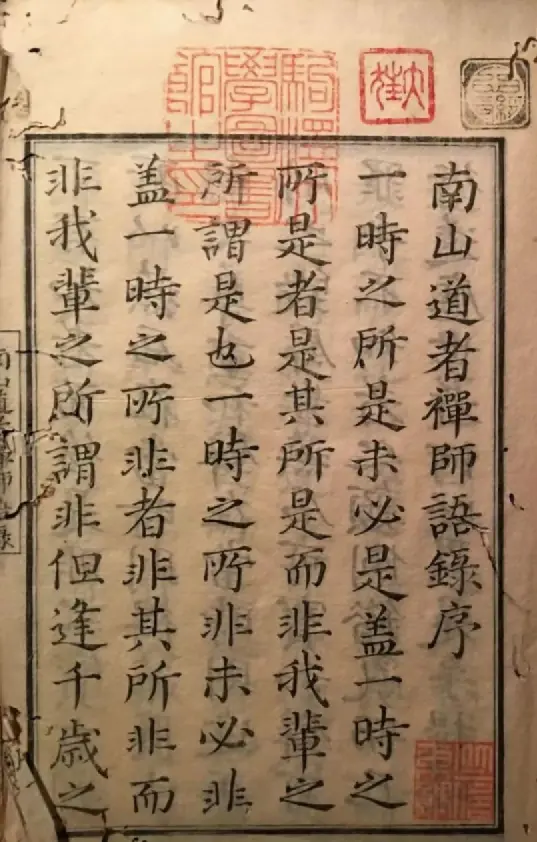 南山道者禪師語錄序
一時之所是未必是盖一時之
所是者是其所是而非我輩之
所謂是也一時之所非未必非
盖一時之所非者非其所非而
非我輩之所謂非但逢千歲之